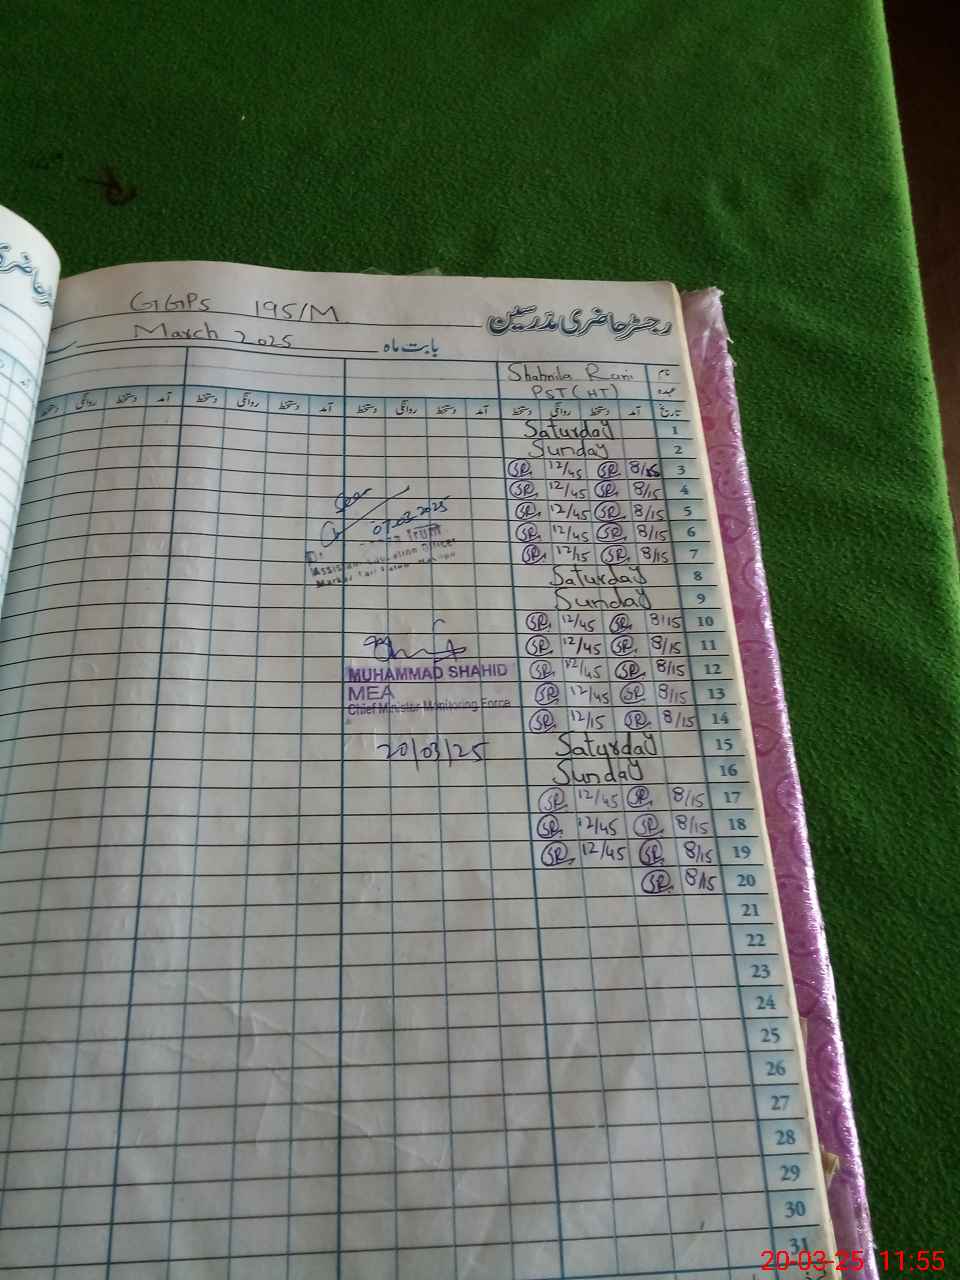 GGPS 195/M
رجسٹر حاضری مدرسین
March 2025 بابت ماہ
نام Shahnila Rani
عہدہ PST (HT)
تاریخ آمد دستخط روانگی دستخط آمد دستخط روانگی دستخط آمد دستخط روانگی دستخط آمد دستخط روانگی دستخط
1 Saturday
2 Sunday
3 8/15 SR 12/45 SR
4 8/15 SR 12/45 SR
5 8/15 SR 12/45 SR
6 8/15 SR 12/45 SR
7 8/15 SR 12/15 SR
8 Saturday
9 Sunday
10 8/15 SR 12/45 SR
11 8/15 SR 12/45 SR
12 8/15 SR 12/45 SR
13 8/15 SR 12/45 SR
14 8/15 SR 12/15 SR
15 Saturday
16 Sunday
17 8/15 SR 12/45 SR
18 8/15 SR 12/45 SR
19 8/15 SR 12/45 SR
20 8/15 SR
21
22
23
24
25
26
27
28
29
30
31
Seen
07-03-2025
Assistant Education Officer
MUHAMMAD SHAHID
MEA
Chief Minister Monitoring Force
20/03/25
20-03-25 11:55